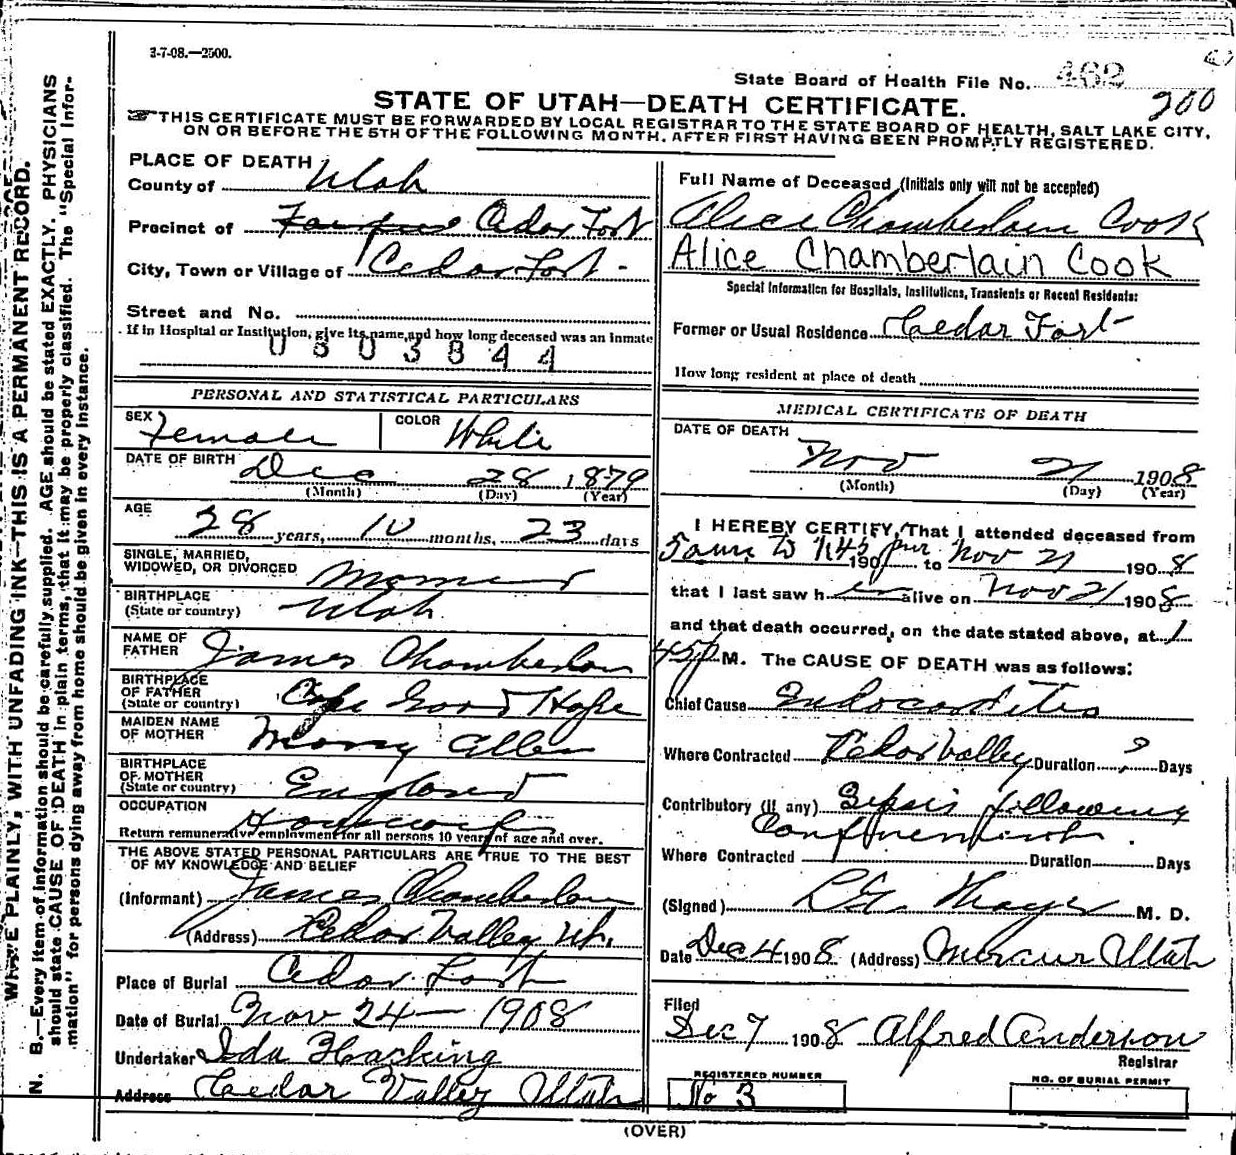 3-7-08.—2500.
State Board of Health File No. 462
200
STATE OF UTAH—DEATH CERTIFICATE.
THIS CERTIFICATE MUST BE FORWARDED BY LOCAL REGISTRAR TO THE STATE BOARD OF HEALTH, SALT LAKE CITY,
ON OR BEFORE THE 5TH OF THE FOLLOWING MONTH, AFTER FIRST HAVING BEEN PROMPTLY REGISTERED.
PLACE OF DEATH
County of Utah
Precinct of Cedar Fort
City, Town or Village of Cedar Fort
Street and No.
If in Hospital or Institution, give its name, and how long deceased was an inmate
0303844
PERSONAL AND STATISTICAL PARTICULARS
SEX Female
COLOR White
DATE OF BIRTH Dec 28 1879
(Month) (Day) (Year)
AGE 28 years, 10 months, 23 days
SINGLE, MARRIED,
WIDOWED, OR DIVORCED Married
BIRTHPLACE
(State or country) Utah
NAME OF
FATHER James Chamberlain
BIRTHPLACE
OF FATHER
(State or country) Cape Good Hope
MAIDEN NAME
OF MOTHER Mary Allen
BIRTHPLACE
OF MOTHER
(State or country) England
OCCUPATION Housewife
Return remunerative employment for all persons 10 years of age and over.
THE ABOVE STATED PERSONAL PARTICULARS ARE TRUE TO THE BEST
OF MY KNOWLEDGE AND BELIEF
(Informant) James Chamberlain
(Address) Cedar Valley Ut.
Place of Burial Cedar Fort
Date of Burial Nov 24 — 1908
Undertaker Ida Hacking
Address Cedar Valley Utah
Full Name of Deceased (Initials only will not be accepted)
Alice Chamberlain Cook
Alice Chamberlain Cook
Special Information for Hospitals, Institutions, Transients or Recent Residents:
Former or Usual Residence Cedar Fort
How long resident at place of death
MEDICAL CERTIFICATE OF DEATH
DATE OF DEATH
Nov 21 1908
(Month) (Day) (Year)
I HEREBY CERTIFY, That I attended deceased from
5 am to 1:45 190 pm to Nov 21 1908
that I last saw her alive on Nov 21 1908
and that death occurred, on the date stated above, at 1
45 P M. The CAUSE OF DEATH was as follows:
Chief Cause Endocarditis
Where Contracted Cedar Valley Duration ? Days
Contributory (if any) Sepsis following
Confinement.
Where Contracted Duration Days
(Signed) Thayer M. D.
Date Dec 4 1908 (Address) Mercur Utah
Filed
Dec 7 1908 Alfred Anderson
Registrar
REGISTERED NUMBER
No 3
NO. OF BURIAL PERMIT
(OVER)
WRITE PLAINLY, WITH UNFADING INK—THIS IS A PERMANENT RECORD.
N. B.—Every item of information should be carefully supplied. AGE should be stated EXACTLY. PHYSICIANS
should state CAUSE OF DEATH in plain terms, that it may be properly classified. The "Special Infor-
mation" for persons dying away from home should be given in every instance.